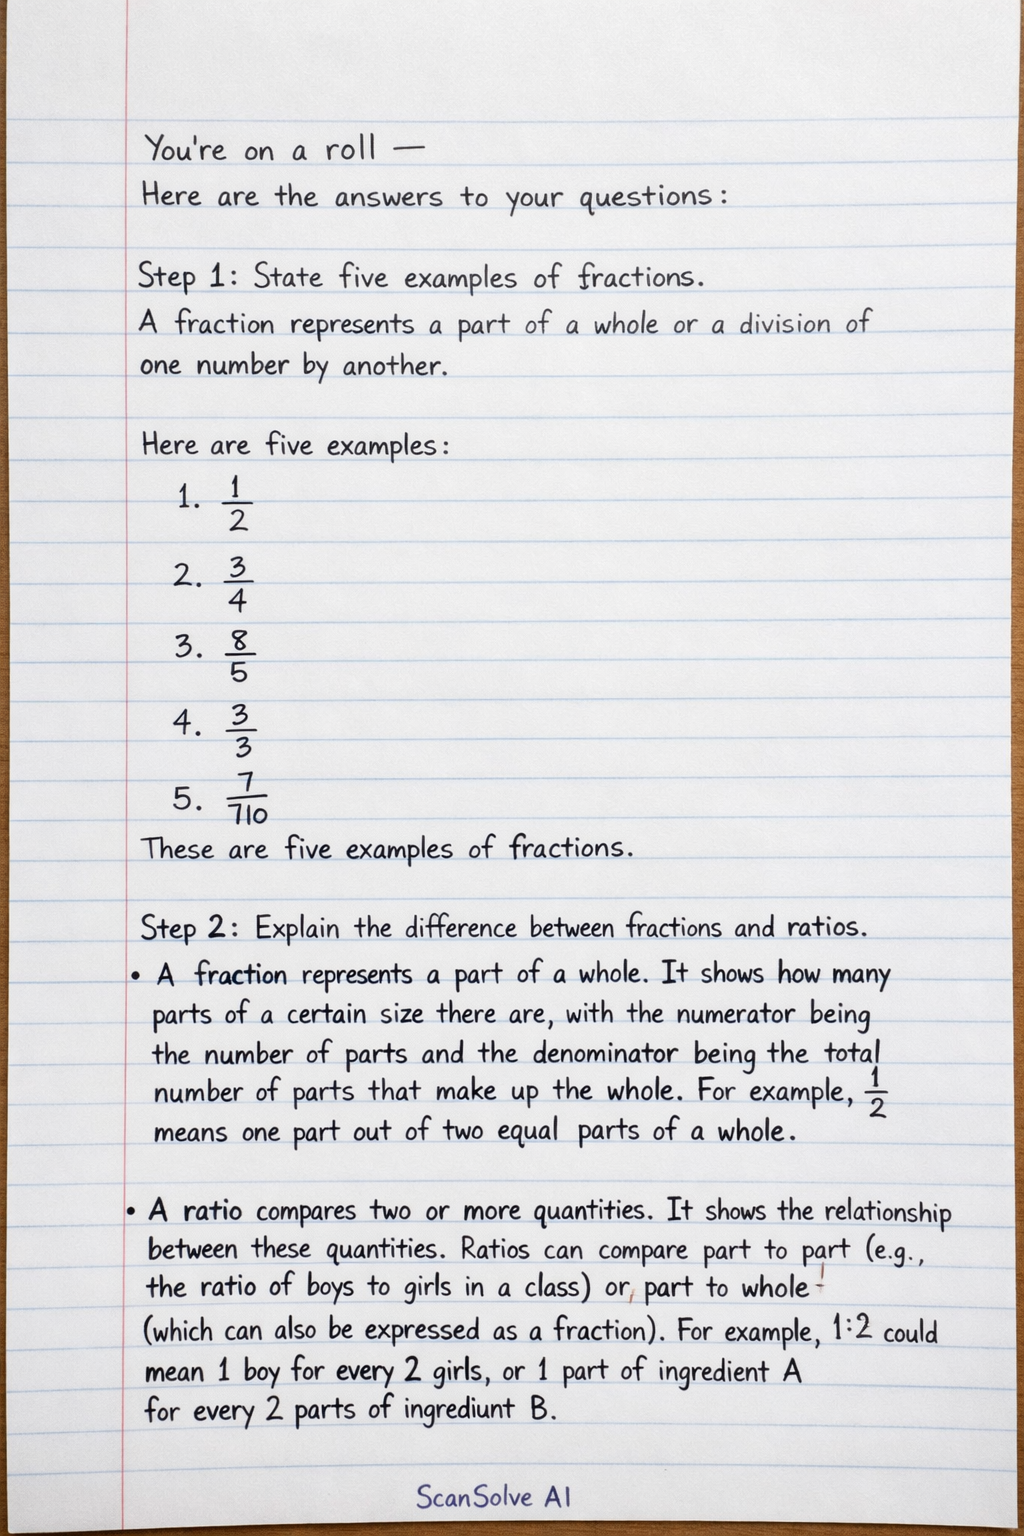 You're on a roll —
Here are the answers to your questions:
Step 1: State five examples of fractions.
A fraction represents a part of a whole or a division of
one number by another.
Here are five examples:
1. 1/2
2. 3/4
3. 8/5
4. 3/3
5. 7/710
These are five examples of fractions.
Step 2: Explain the difference between fractions and ratios.
• A fraction represents a part of a whole. It shows how many
parts of a certain size there are, with the numerator being
the number of parts and the denominator being the total
number of parts that make up the whole. For example, 1/2
means one part out of two equal parts of a whole.
• A ratio compares two or more quantities. It shows the relationship
between these quantities. Ratios can compare part to part (e.g.,
the ratio of boys to girls in a class) or, part to whole
(which can also be expressed as a fraction). For example, 1:2 could
mean 1 boy for every 2 girls, or 1 part of ingredient A
for every 2 parts of ingrediunt B.
ScanSolve AI